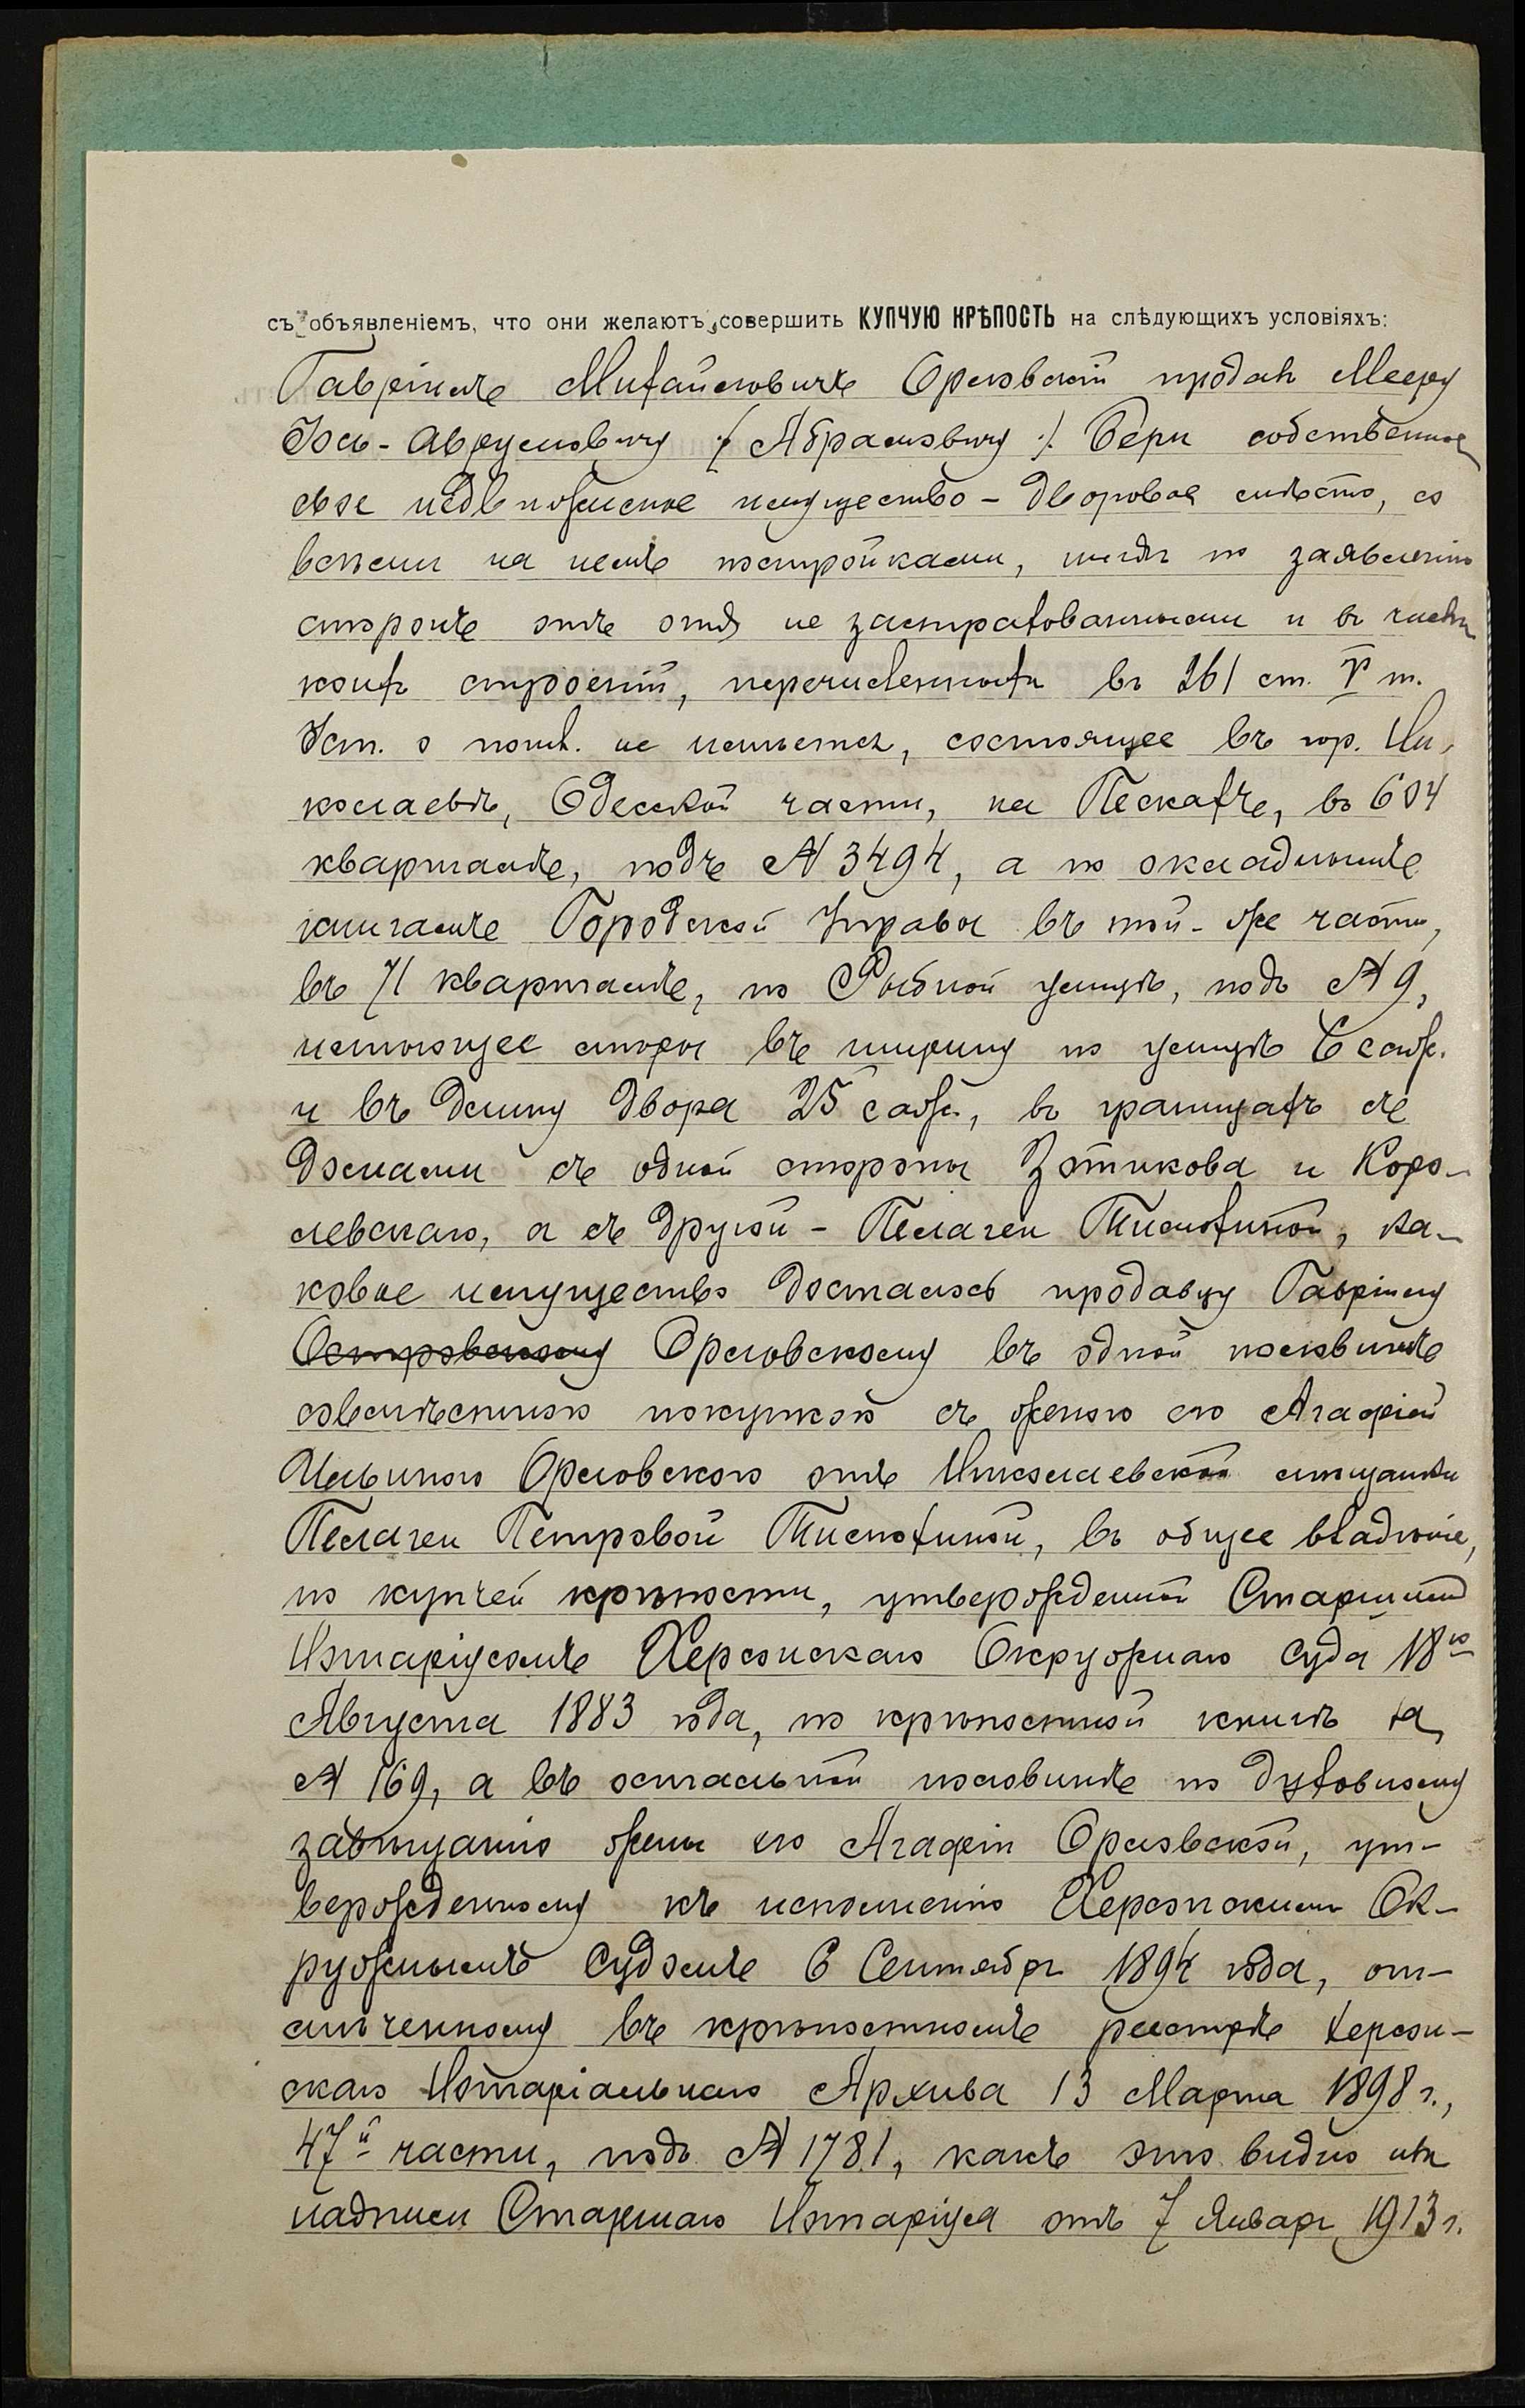 съ объявленіемъ, что они желаютъ совершить КУПЧУЮ КРѢПОСТЬ на слѣдующихъ условіяхъ:
Гавріилъ Михайловичъ Орловскій продалъ Мееру
Іось-Аврумовичу /Абрамовичу/ Бери собственное
свое недвижимое имущество - дворовое мѣсто, со
всѣми на немъ постройками, нигдѣ по заявленію
сторонъ отъ огня не застрахованными и въ числѣ
коихъ строеній, перечисленныхъ въ 261 ст. V т.
Уст. о пошл. не имѣется, состоящее въ гор. Ни-
колаевѣ, Одесской части, на Пескахъ, въ 604
кварталѣ, подъ № 3494, а по окладнымъ
книгамъ Городской Управы въ той-же части,
въ 71 кварталѣ, по Рыбной улицѣ, подъ № 9,
имѣющее мѣры въ ширину по улицѣ 6 саж.
и въ длину двора 25 саж., въ границахъ съ
домами съ одной стороны Зотикова и Коро-
левскаго, а съ другой - Пелагеи Тимохиной, ка-
ковое имущество досталось продавцу Гавріилу
Островскому Орловскому въ одной половинѣ
совмѣстною покупкою съ женою его Агафіей
Ильиною Орловскою отъ Николаевской мѣщанки
Пелагеи Петровой Тимохиной, въ общее владѣніе,
по купчей крѣпости, утвержденной Старшимъ
Нотаріусомъ Херсонскаго Окружнаго Суда 18го
Августа 1883 года, по крѣпостной книгѣ за
№ 169, а въ остальной половинѣ по духовному
завѣщанію жены его Агафіи Орловской, ут-
вержденному къ исполненію Херсонскимъ Ок-
ружнымъ Судомъ 6 Сентября 1894 года, от-
мѣченному въ крѣпостномъ реестрѣ Херсон-
скаго Нотаріальнаго Архива 13 Марта 1898 г.,
47й части, подъ № 1781, какъ это видно изъ
надписи Старшаго Нотаріуса отъ 7 Января 1913 г.